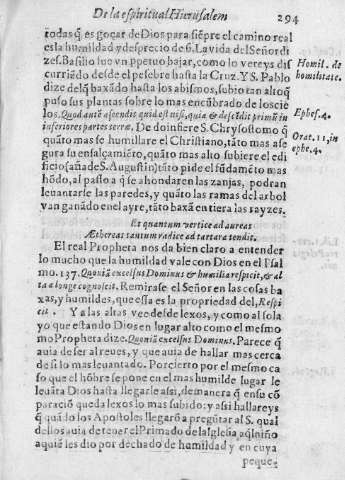 De la espiritual Hierusalem 294
todas q̃ es goçar de Dios para siẽpre el camino real
es la humildad y desprecio de si. La vida del Señor di-
ze S. Basilio fue vn ppetuo bajar, como lo vereys dis
curriẽdo desde el pesebre hasta la Cruz. Y S. Pablo
dize del q̃ baxãdo hasta los abismos, subio tan alto q̃
puso sus plantas sobre lo mas encũbrado de los cie
los. Quod autẽ ascendit quid est nisi, quia & descẽdit primũ in
inferiores partes terræ. De do infiere S. Chrysostomo q̃
quãto mas se humillare el Christiano, tãto mas ase
gura su ensalçamiẽto, quãto mas alto subiere el edi
ficio (añade S. Augustin) tãto pide el fũdamẽto mas
hõdo, al passo a q̃ se ahondaren las zanjas, podran
leuantarse las paredes, y quãto las ramas del arbol
van ganãdo en el ayre, tãto baxã en tierra las rayzes.
Homil. de
humilitate.
Ephes. 4.
Orat. 11, in
ephe. 4.
Et quantum vertice ad aureas
Æthereas tantum radice ad tartara tendit.
El real Propheta nos da bien claro a entender
lo mucho que la humildad vale con Dios en el Psal
mo. 137. Quoniã excelsus Dominus & humilia respicit, & al
ta a longe cognoscit. Remirase el Señor en las cosas ba
xas, y humildes, que essa es la propriedad del, Respi
cit. Y a las altas vee desde lexos, y como al sola
yo que estando Dios en lugar alto como el mesmo
mo Propheta dize. Quoniã excelsus Dominus. Parece q̃
auia de ser al reues, y que auia de hallar mas cerca
de si lo mas leuantado. Por cierto por el mesmo ca
so que el hõbre se pone en el mas humilde lugar le
leuãta Dios hasta llegarle assi, de manera q̃ en su cõ
paració queda lexos lo mas subido: y assi hallareys
q̃ quãdo los Apostoles llegarõ a pregũtar al S. qual
dellos auia de tener el Primado de la Iglesia aq̃l niño
a quiẽ les dio por dechado de humildad y en cuya
peque-